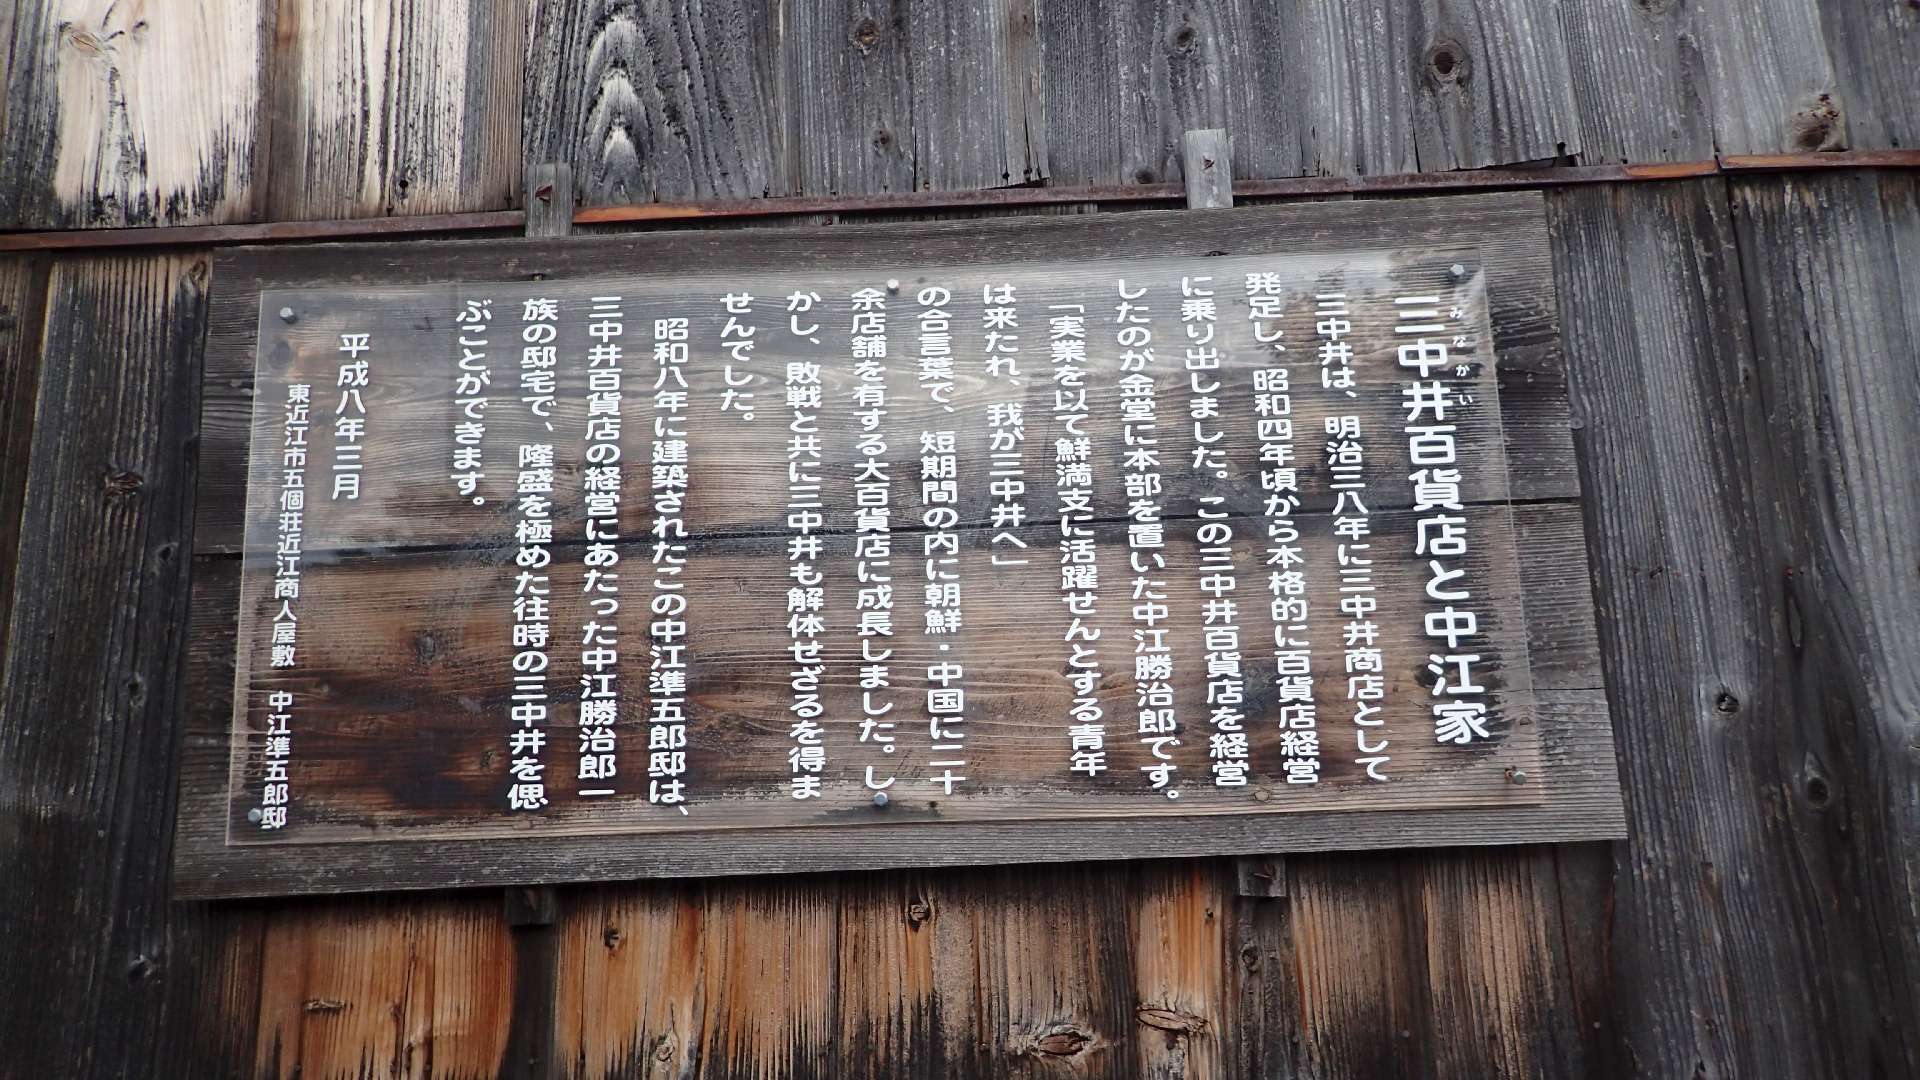 三中井百貨店と中江家
みなかい
三中井は、明治三八年に三中井商店として
発足し、昭和四年頃から本格的に百貨店経営
に乗り出しました。この三中井百貨店を経営
したのが金堂に本部を置いた中江勝治郎です。
「実業を以て鮮満支に活躍せんとする青年
は来たれ、我が三中井へ」
の合言葉で、短期間の内に朝鮮・中国に二十
余店舗を有する大百貨店に成長しました。し
かし、敗戦と共に三中井も解体せざるを得ま
せんでした。
昭和八年に建築されたこの中江準五郎邸は、
三中井百貨店の経営にあたった中江勝治郎一
族の邸宅で、隆盛を極めた往時の三中井を偲
ぶことができます。
平成八年三月
東近江市五個荘近江商人屋敷　中江準五郎邸